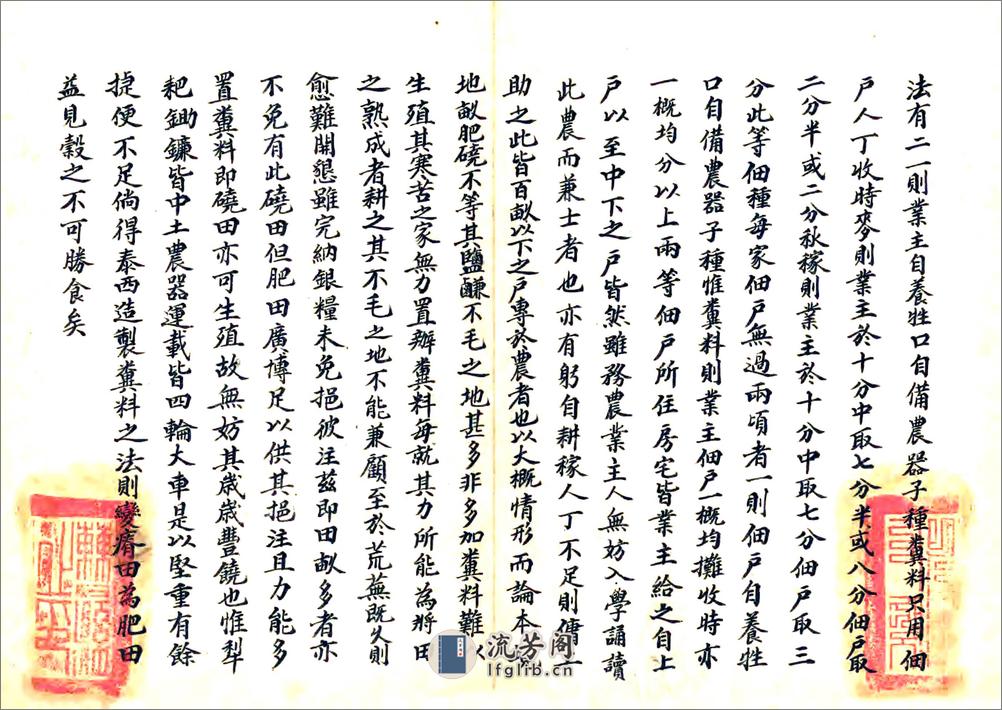 法有二一則業主自養牲口自備農器子種糞料只用佃
戶人丁收時麥則業主於十分中取七分半或八分佃戶取
二分半或二分秋稼則業主於十分中取七分佃戶取三
分此等佃種每家佃戶無過兩頃者一則佃戶自養牲
口自備農器子種惟糞料則業主佃戶一概均攤收時亦
一概均分以上兩等佃戶所住房宅皆業主給之自上
戶以至中下之戶皆然雖務農業主人無妨入學誦讀
此農而兼士者也亦有躬自耕稼人丁不足則傭工
助之此皆百畝以下之戶專於農者也以大概情形而論本
地畝肥磽不等其鹽鹻不毛之地甚多非多加糞料難
生殖其寒苦之家無力置辦糞料每就其力所能為將田
之熟成者耕之其不毛之地不能兼顧至於荒蕪既久則
愈難開懇雖完納銀糧未免挹彼注茲即田畝多者亦
不免有此磽田但肥田廣博足以供其挹注且力能多
置糞料即磽田亦可生殖故無妨其歲歲豐饒也惟犁
耙鋤鐮皆中土農器運載皆四輪大車是以堅重有餘
捷便不足倘得泰西造製糞料之法則變瘠田為肥田
益見穀之不可勝食矣
流芳阁
lfglib.cn